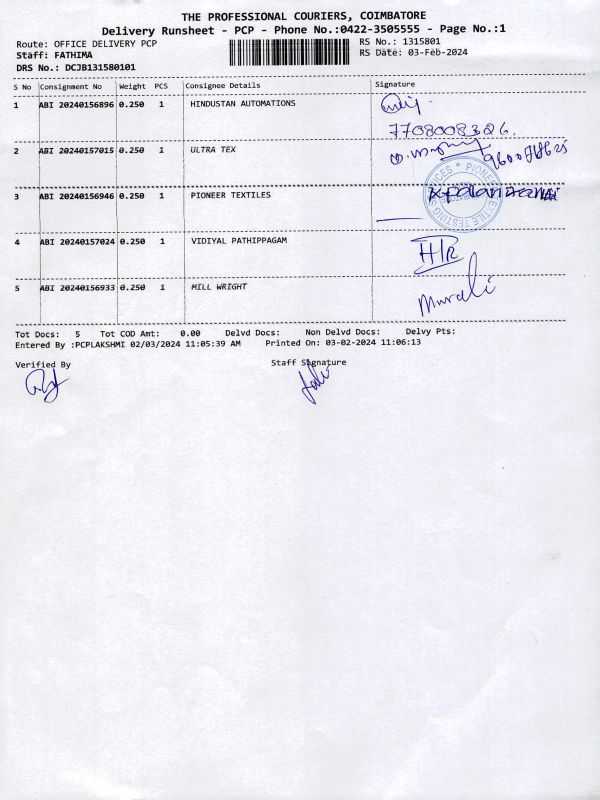 THE PROFESSIONAL COURIERS, COIMBATORE
Delivery Runsheet - PCP - Phone No.:0422-3505555 - Page No.:1
Route: OFFICE DELIVERY PCP
Staff: FATHIMA
DRS No.: DCJB131580101
RS No.: 1315801
RS Date: 03-Feb-2024
S No Consignment No Weight PCS Consignee Details Signature
1 ABI 20240156896 0.250 1 HINDUSTAN AUTOMATIONS
7708008326.
2 ABI 20240157015 0.250 1 ULTRA TEX
3 ABI 20240156946 0.250 1 PIONEER TEXTILES
4 ABI 20240157024 0.250 1 VIDIYAL PATHIPPAGAM
5 ABI 20240156933 0.250 1 MILL WRIGHT
Murali
Tot Docs: 5 Tot COD Amt: 0.00 Delvd Docs: Non Delvd Docs: Delvy Pts:
Entered By :PCPLAKSHMI 02/03/2024 11:05:39 AM Printed On: 03-02-2024 11:06:13
Verified By Staff Signature